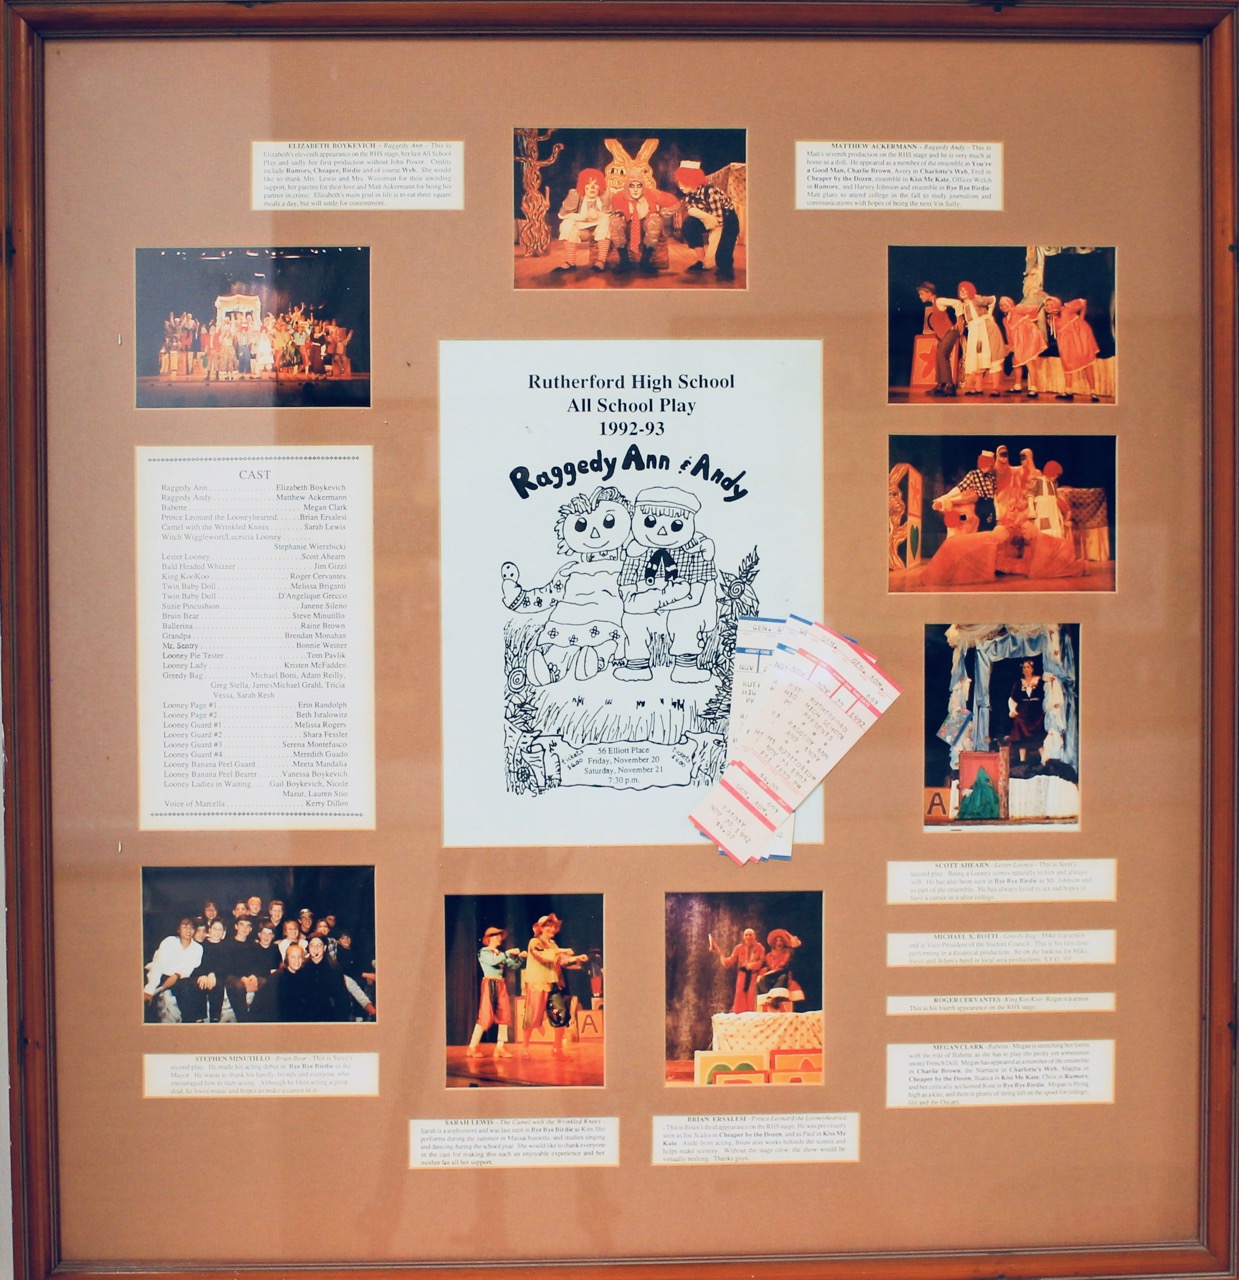 ELIZABETH BOYKEVICH - Raggedy Ann - This is
Elizabeth's eleventh appearance on the RHS stage, her last All School
Play and sadly her first production without John Power. Credits
include Rumors, Cheaper, Birdie and of course Web. She would
like to thank Mrs. Lewis and Mrs. Weissman for their unending
support, her parents for their love and Matt Ackermann for being her
partner in crime. Elizabeth's main goal in life is to eat three square
meals a day, but will settle for contentment.
MATTHEW ACKERMANN - Raggedy Andy - This is
Matt's seventh production on the RHS stage and he is very much at
home as a doll. He appeared as a member of the ensemble in You're
a Good Man, Charlie Brown, Avery in Charlotte's Web, Fred in
Cheaper by the Dozen, ensemble in Kiss Me Kate, Officer Welch
in Rumors, and Harvey Johnson and ensemble in Bye Bye Birdie.
Matt plans to attend college in the fall to study journalism and
communications with hopes of being the next Vin Sully.
Rutherford High School
All School Play
1992-93
Raggedy Ann & Andy
56 Elliott Place
Friday, November 20
Saturday, November 21
7:30 p.m.
tickets
$4.00
tickets
$4.00
CAST
Raggedy Ann Elizabeth Boykevich
Raggedy Andy Matthew Ackermann
Babette Megan Clark
Prince Leonard the Looneyhearted Brian Ersalesi
Camel with the Wrinkled Knees Sarah Lewis
Witch Wigglewort/Lauricia Looney
Stephanie Wierzbicki
Lester Looney Scott Ahearn
Bald Headed Whizzer Jim Gizzi
King KooKoo Roger Cervantes
Twin Baby Doll Melissa Briganti
Twin Baby Doll D'Angelique Grecco
Suzie Pincushion Janene Sileno
Bruin Bear Steve Minutillo
Ballerina Raine Brown
Grandpa Brendan Monahan
Mr. Sentry Bonnie Weiser
Looney Pie Tester Tom Pavlik
Looney Lady Kristen McFadden
Greedy Bag Michael Botti, Adam Reilly,
Greg Stella, JamesMichael Grahl, Tricia
Vessa, Sarah Resh
Looney Page #1 Erin Randolph
Looney Page #2 Beth Iszalowitz
Looney Guard #1 Melissa Rogers
Looney Guard #2 Shara Fessler
Looney Guard #3 Serena Montefusco
Looney Guard #4 Meredith Guado
Looney Banana Peel Guard Meeta Mandalia
Looney Banana Peel Bearer Vanessa Boykevich
Looney Ladies in Waiting Gail Boykevich, Nicole
Mazur, Lauren Stio
Voice of Marcella Kerry Dillon
GEN. ADM.
NOV 20 1992
A
SCOTT AHEARN - Lester Looney - This is Scott's
second play. Being a Looney comes naturally to him and always
will. He has also been seen in Bye Bye Birdie as Mr. Johnson and
as part of the ensemble. He has always loved to act and hopes to
have a career in it after college.
MICHAEL X. BOTTI - Greedy Bag - Mike is a senior
and is Vice-President of the Student Council. This is his first time
performing in a theatrical production.
ROGER CERVANTES - King Koo Koo - Roger is a senior.
This is his fourth appearance on the RHS stage.
MEGAN CLARK - Babette - Megan is stretching her limits
with the role of Babette as she has to play the pretty yet sometimes
snooty French Doll. Megan has appeared as a member of the ensemble
in Charlie Brown, the Narrator in Charlotte's Web, Martha in
Cheaper by the Dozen, Bianca in Kiss Me Kate, Chris in Rumors
and her critically acclaimed Rose in Bye Bye Birdie. Megan is flying
STEPHEN MINUTILLO - Bruin Bear - This is Steve's
second play. He made his acting debut in Bye Bye Birdie as the
Mayor. He wants to thank his family, friends and everyone who
encouraged him to start acting. Although he likes acting a great
deal, he loves music and hopes to make a career in it.
A
SARAH LEWIS - The Camel with the Wrinkled Knees -
Sarah is a sophomore and was last seen in Bye Bye Birdie as Kim. She
performs during the summer in Massachusetts, and studies singing
and dancing during the school year. She would like to thank everyone
in the cast for making this such an enjoyable experience and her
mother for all her support.
BRIAN ERSALESI - Prince Leonard the Looneyhearted
- This is Brian's third appearance on the RHS stage. He was previously
seen as Joe Scales in Cheaper by the Dozen, and as Paul in Kiss Me
Kate. Aside from acting, Brian also works behind the scenes and
helps make scenery. Without the stage crew, the show would be
virtually nothing. Thanks guys.